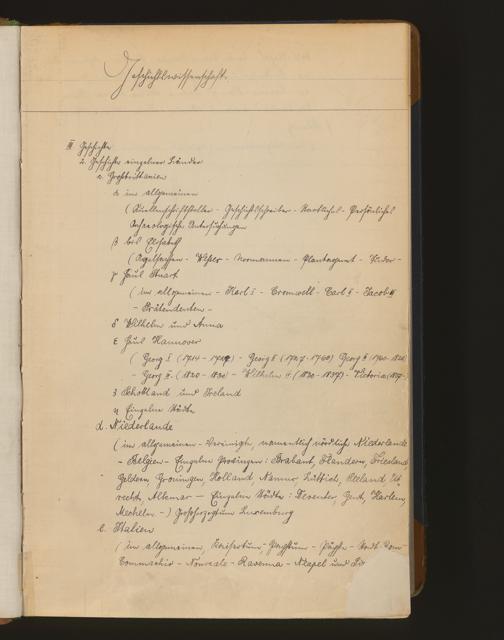 Geschichtswissenschaft.
III Geschichte
2. Geschichte einzelner Länder
c. Großbrittanien
α im allgemeinen
(Quellenschriftsteller - Geschichtschreiber - Persönliches
Archaeologische Untersuchungen
β bis Elisabeth
(Agelsachsen - - Normannen - Plantagenet - Tudor -
γ Haus Stuart
(im allgemeinen - Karl I - Cromwell - Carl II - Jacob II
- Prätendenten -
δ Wilhelm und Anna
ε Haus Hannover
(Georg I (1714 - 1727) - Georg II (1727 - 1760) Georg III (1760 - 1820)
- Georg IV. (1820 - 1830) - Wilhelm 4. (1830 - 1837) - Victoria (1837 -
ζ Schottland und Irland
η Einzelne Städte
d. Niederlande
(im allgemeinen - Vereinigte, namentlich nördliche Niederlande
- Belgien - Einzelne Provinzen: Brabant, Flandern, Friesland
Geldern, Groningen, Holland Namur, Lüttich, Seeland Ut-
recht, Alkmar - Einzelne Städte: Deventer, Gent, Harlem,
Mecheln -) Großherzogtum Luxemburg
e. Italien
(im allgemeinen, Kaisertum - Papsttum - Päpste - Stadt Rom -
Commachio - - Ravenna - Neapel und